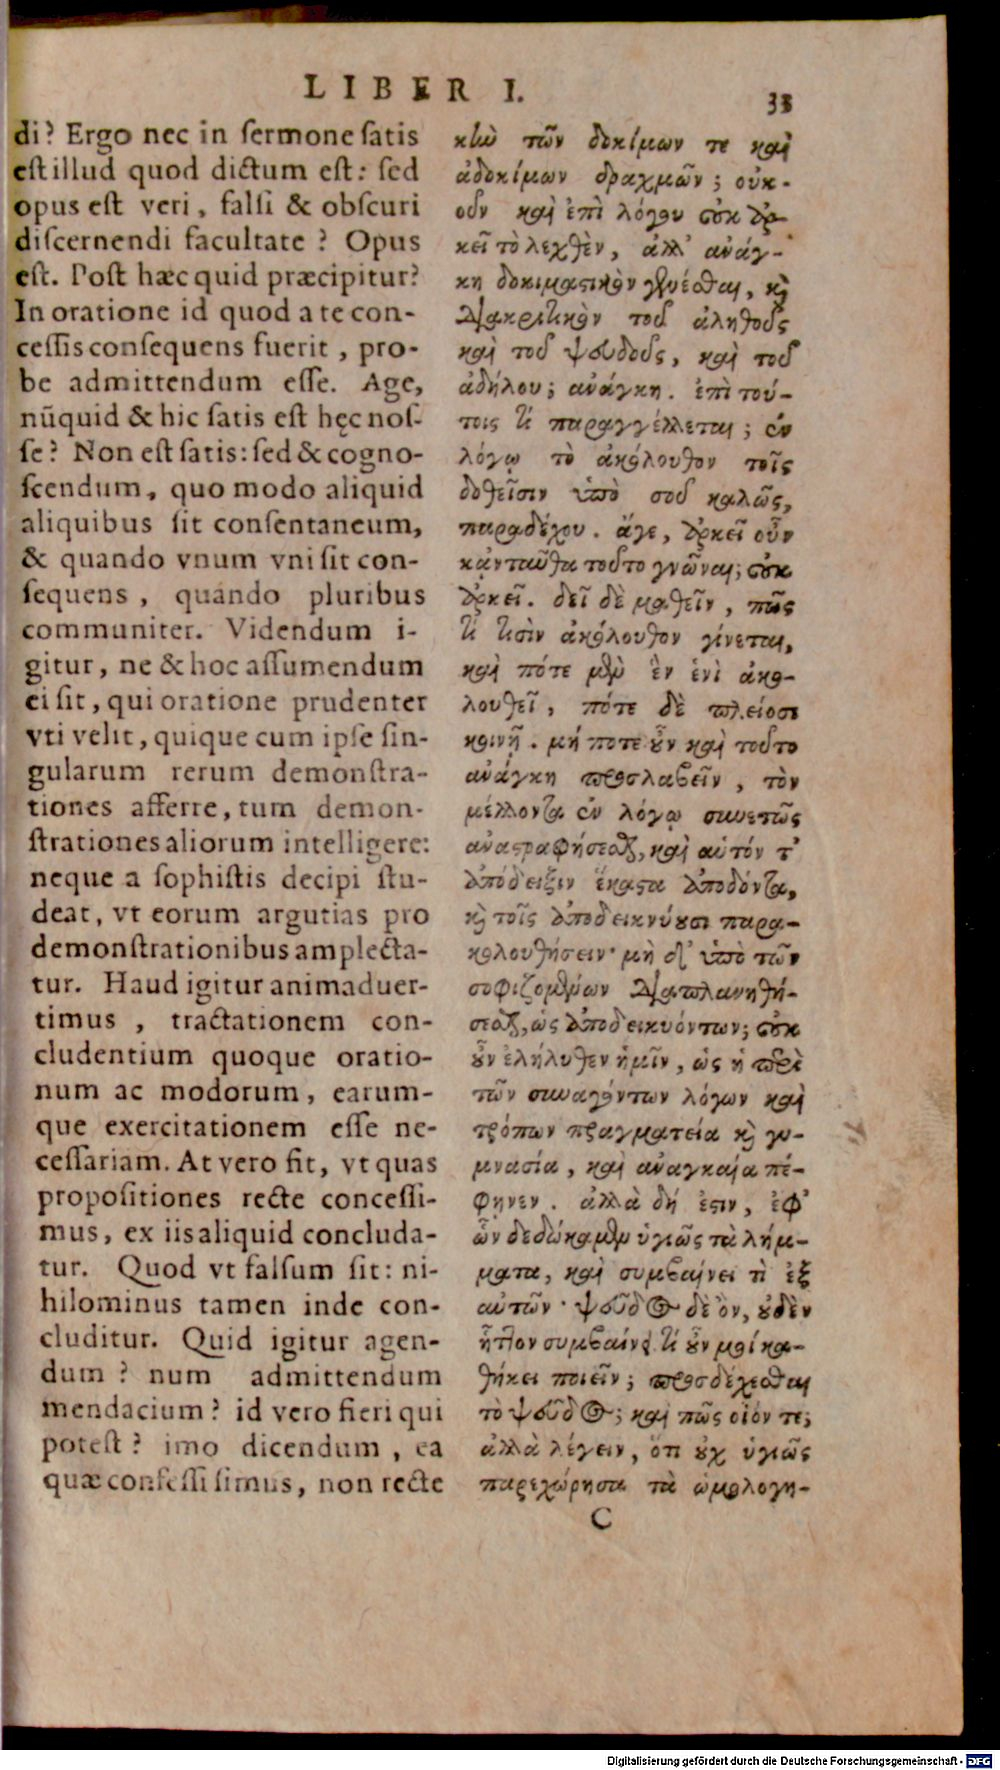 LIBER I.
33
di? Ergo nec in sermone satis
est illud quod dictum est: sed
opus est veri, falsi & obscuri
discernendi facultate? Opus
est. Post hæc quid præcipitur?
In oratione id quod a te con-
cessis consequens fuerit, pro-
be admittendum esse. Age,
nũquid & hic satis est hęc nos-
se? Non est satis: sed & cogno-
scendum, quo modo aliquid
aliquibus sit consentaneum,
& quando vnum vni sit con-
sequens, quando pluribus
communiter. Videndum i-
gitur, ne & hoc assumendum
ei sit, qui oratione prudenter
vti velit, quique cum ipse sin-
gularum rerum demonstra-
tiones afferre, tum demon-
strationes aliorum intelligere:
neque a sophistis decipi stu-
deat, vt eorum argutias pro
demonstrationibus amplecta-
tur. Haud igitur animaduer-
timus, tractationem con-
cludentium quoque oratio-
num ac modorum, earum-
que exercitationem esse ne-
cessariam. At vero fit, vt quas
propositiones recte concessi-
mus, ex iis aliquid concluda-
tur. Quod vt falsum sit: ni-
hilominus tamen inde con-
cluditur. Quid igitur agen-
dum? num admittendum
mendacium? id vero fieri qui
potest? imo dicendum, ea
quæ confessi simus, non recte
κὴν τῶν δοκίμων τε καὶ
ἀδοκίμων δραχμῶν; οὐκ-
οῦν καὶ ἐπὶ λόγου οὐκ ἀρ-
κεῖ τὸ λεχθὲν, ἀλλ' ἀνάγ-
κη δοκιμαστικὸν γενέσθαι, καὶ
διακριτικὸν τοῦ ἀληθοῦς
καὶ τοῦ ψευδοῦς, καὶ τοῦ
ἀδήλου; ἀνάγκη. ἐπὶ τού-
τοις τί παραγγέλλεται; ἐν
λόγῳ τὸ ἀκόλουθον τοῖς
δοθεῖσιν ὑπὸ σοῦ καλῶς,
παραδέχου. ἄγε, ἀρκεῖ οὖν
κἀνταῦθα τοῦτο γνῶναι; οὐκ
ἀρκεῖ. δεῖ δὲ μαθεῖν, πῶς
τί τισὶν ἀκόλουθον γίνεται,
καὶ πότε μὲν ἓν ἑνὶ ἀκο-
λουθεῖ, πότε δὲ πλείοσι
κοινῇ. μή ποτε οὖν καὶ τοῦτο
ἀνάγκη προσλαβεῖν, τὸν
μέλλοντα ἐν λόγῳ συνετῶς
ἀναστραφήσεσθαι, καὶ αὐτόν τ'
ἀπόδειξιν ἕκαστα ἀποδόντα,
καὶ τοῖς ἀποδεικνύουσι παρα-
κολουθήσειν· μὴ δ' ὑπὸ τῶν
σοφιζομένων διαπλανηθή-
σεσθαι, ὡς ἀποδεικυόντων; οὐκ
οὖν ἐλήλυθεν ἡμῖν, ὡς ἡ περὶ
τῶν συναγόντων λόγων καὶ
τρόπων πραγματεία καὶ γυ-
μνασία, καὶ ἀναγκαία πέ-
φηνεν. ἀλλὰ δή ἐστιν, ἐφ'
ὧν δεδώκαμεν ὑγιῶς τὰ λήμ-
ματα, καὶ συμβαίνει τὶ ἐξ
αὐτῶν· ψεῦδος δὲ ὂν, οὐδὲν
ἧττον συμβαίνει. τί οὖν μοι κα-
θήκει ποιεῖν; προσδέχεσθαι
τὸ ψεῦδος; καὶ πῶς οἷόν τε;
ἀλλὰ λέγειν, ὅτι οὐχ ὑγιῶς
παρεχώρησα τὰ ὡμολογη-
C
Digitalisierung gefördert durch die Deutsche Forschungsgemeinschaft - DFG